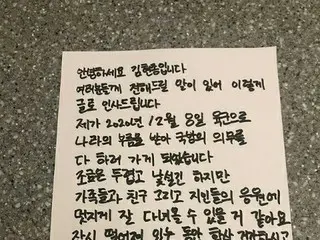 안녕하세요 김현중입니다
여러분들께 전해드릴 말이 있어 이렇게
글로 인사드립니다
제가 2020년 12월 8일 육군으로
나라의 부름을 받아 국방의 의무를
다 하러 가게 되었습니다
조금은 두렵고 낯설긴 하지만
가족들과 친구 그리고 지인들의 응원에
멋지게 잘 다녀올 수 있을 거 같아요
잠시 떨어져 있는 동안 항상 건강하시고